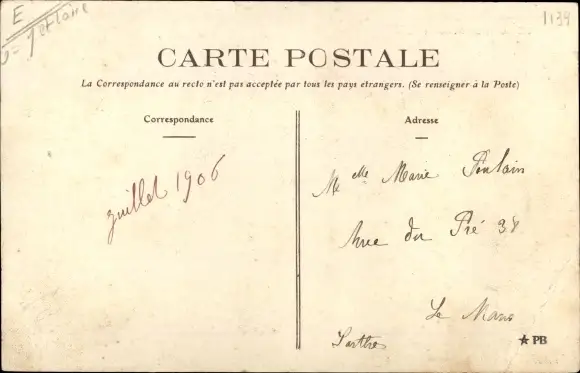 E
1139
CARTE POSTALE
La Correspondance au recto n'est pas acceptée par tous les pays étrangers. (Se renseigner à la Poste)
Correspondance
Adresse
juillet 1906
Melle Marie Poulain
Rue du Pré 38
Le Mans
Sarthe
★ PB